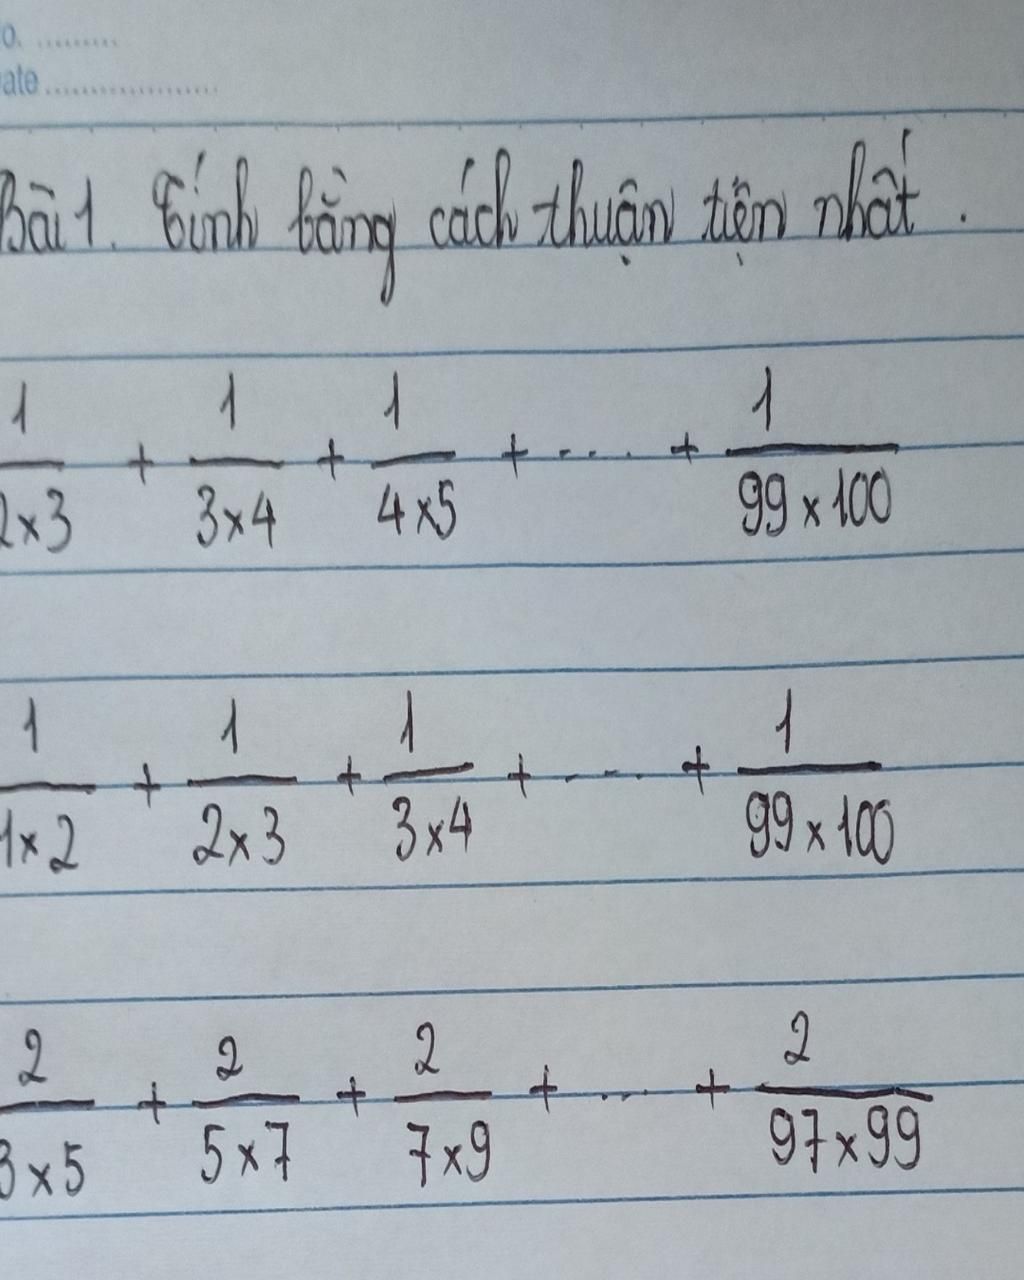 o. .........
ate ...................
Bài 1. Tính bằng cách thuận tiện nhất.
1/2x3 + 1/3x4 + 1/4x5 + .... + 1/99x100
1/1x2 + 1/2x3 + 1/3x4 + .... + 1/99x100
2/3x5 + 2/5x7 + 2/7x9 + ... + 2/97x99